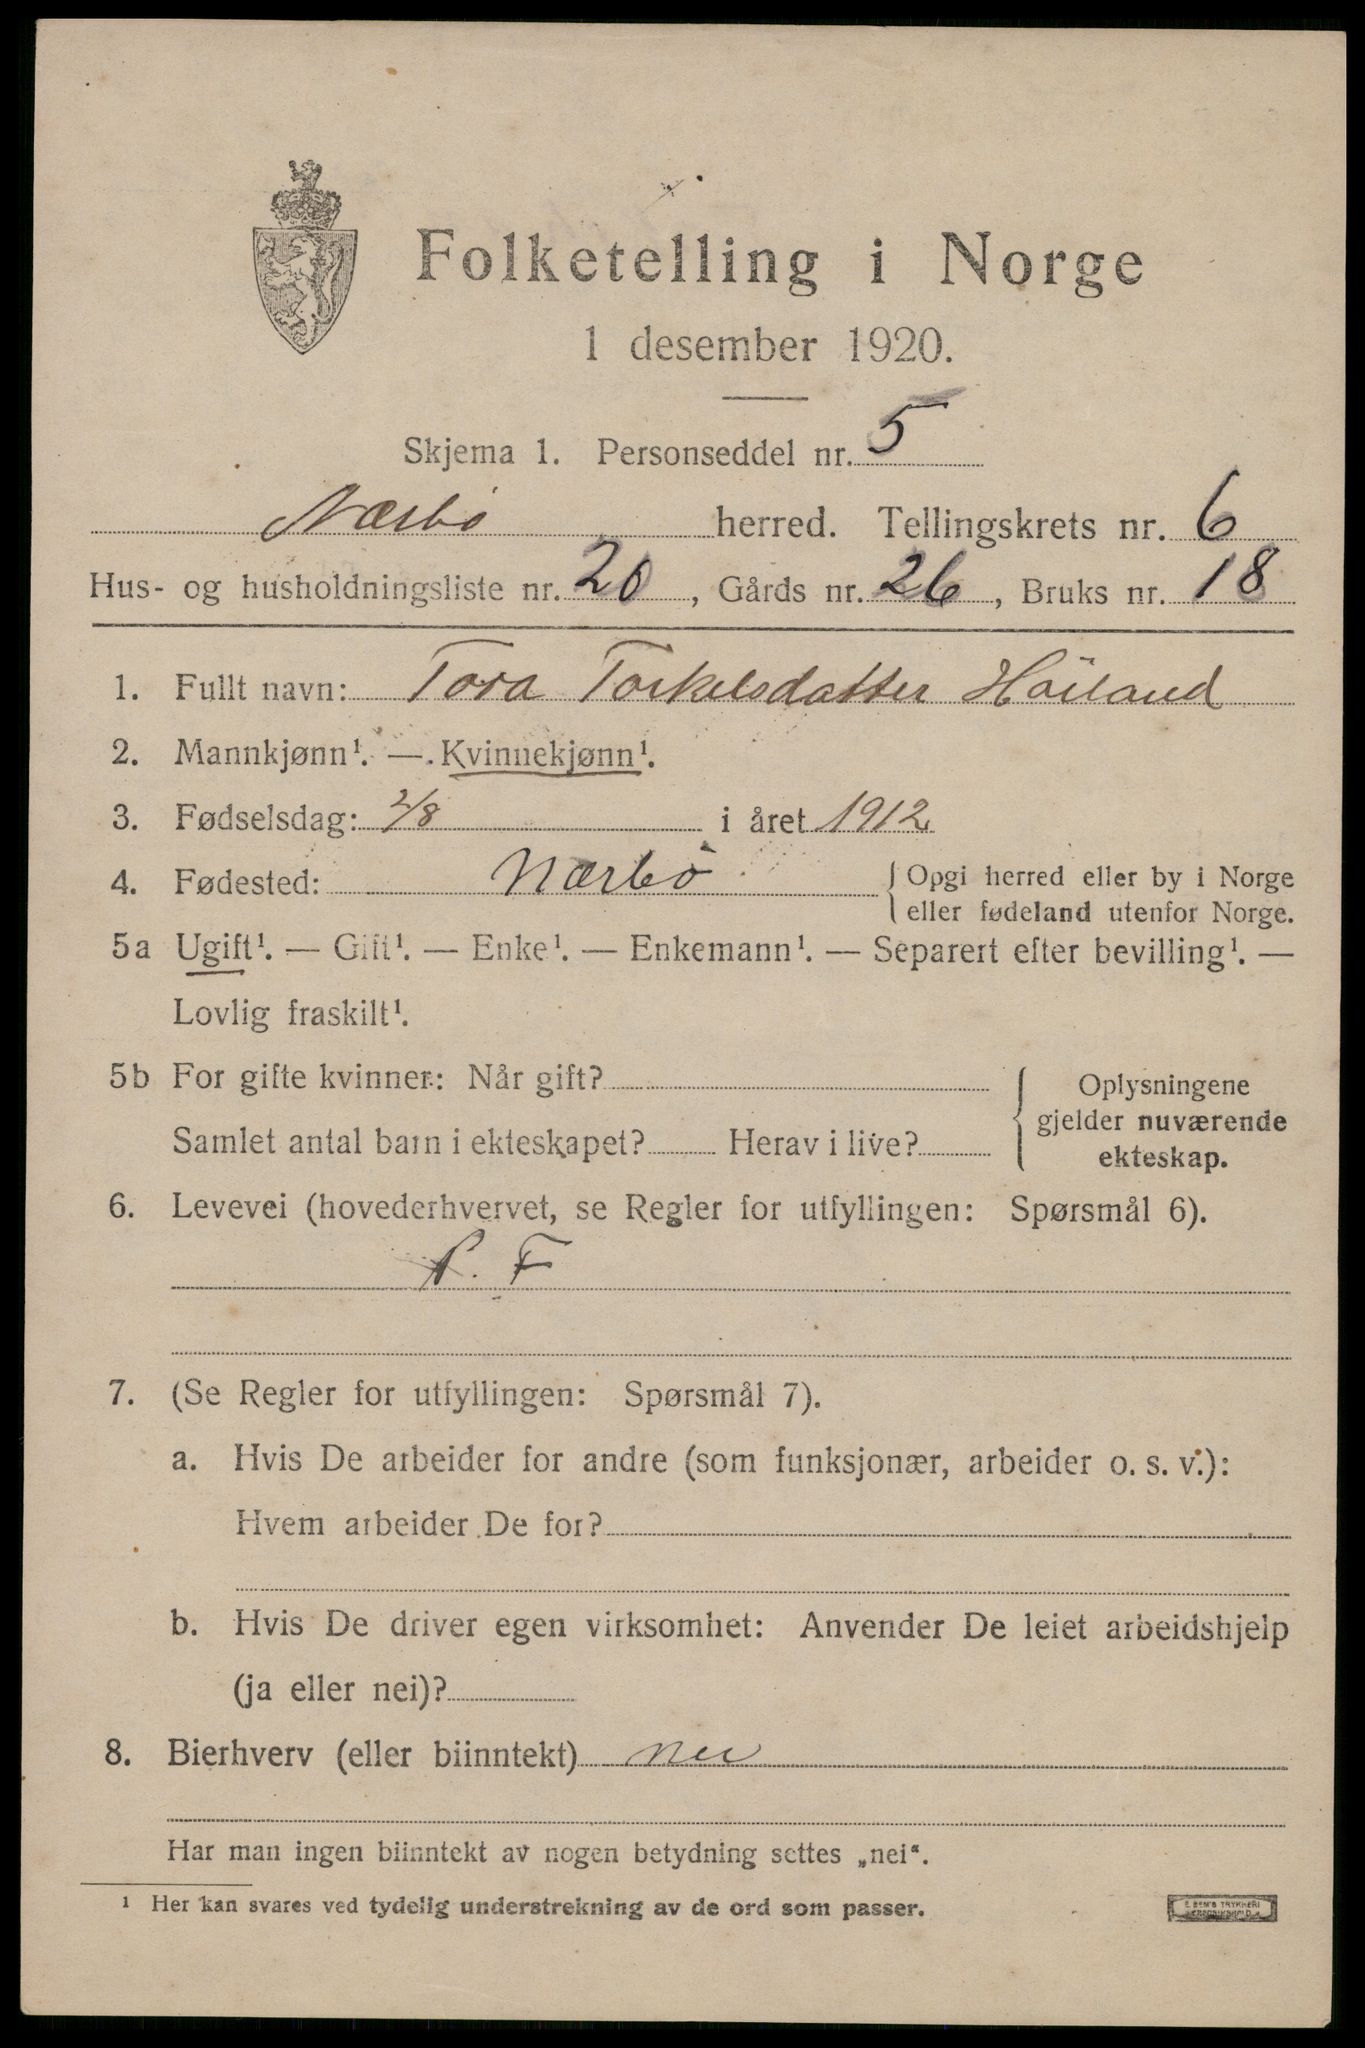 Folketelling i Norge
1 desember 1920.
Skjema 1. Personseddel nr. 5
Nærbø herred. Tellingskrets nr. 6
Hus- og husholdningsliste nr. 20, Gårds nr. 26, Bruks nr. 18
1. Fullt navn: Tora Torkelsdatter Höiland
2. Mannkjønn¹. — Kvinnekjønn¹.
3. Fødselsdag: 2/8 i året 1912
4. Fødested: Nærbø { Opgi herred eller by i Norge
eller fødeland utenfor Norge.
5a Ugift¹. — Gift¹. — Enke¹. — Enkemann¹. — Separert efter bevilling¹. —
Lovlig fraskilt¹.
5b For gifte kvinner: Når gift?
Samlet antal barn i ekteskapet? Herav i live?
Oplysningene
gjelder nuværende
ekteskap.
6. Levevei (hovederhvervet, se Regler for utfyllingen: Spørsmål 6).
F
7. (Se Regler for utfyllingen: Spørsmål 7).
a. Hvis De arbeider for andre (som funksjonær, arbeider o. s. v.):
Hvem arbeider De for?
b. Hvis De driver egen virksomhet: Anvender De leiet arbeidshjelp
(ja eller nei)?
8. Bierhverv (eller biinntekt) nei
Har man ingen biinntekt av nogen betydning settes „nei“.
¹ Her kan svares ved tydelig understrekning av de ord som passer.